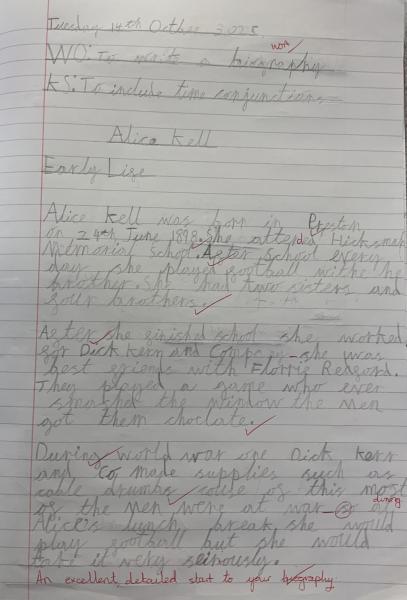 Tuesday 14th October 2025
WO: To write a biography
work
KS: To include time conjunctions
Alice Kell
Early Lise
Alice Kell was born in Preston
on 24th June 1898. She attended Hicksmeh
Memorial School. After School every
day she played football withe he
brother. She had two sisters and
four brothers.
After she finished school she worked
for Dick Kerr and Company she was
best friends with Florrie Redford.
They played a game who ever
smashed the window the Men
got them choclate.
During world war one Dick Kerr
and Co made supplies such as
cable drumbs couse of this most
of the men were at war so
during
Alice's lunch break she would
play football but she would
take it very seiriously.
An excellent, detailed start to your biography.